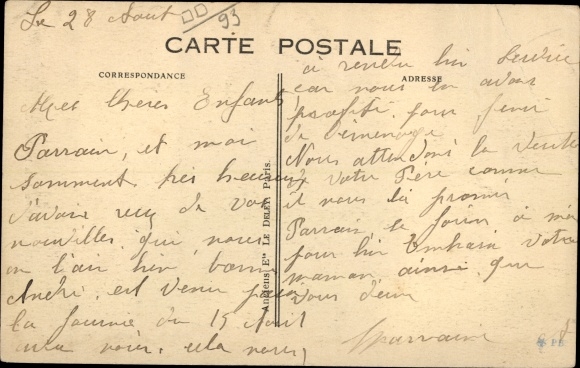 Le 28 Aout
93
CARTE POSTALE
CORRESPONDANCE
ADRESSE
Mes Cheres Enfants
Parrain, et moi
sommes très heureux
d'avoir reçu de vos
nouvelles, qui nous
on l'air bien, bonne
André, est venu passer
la journée du 15 Aout
nous voir, cela nous
à rendu bien service
car nous en avons
profité pour finir
de déménagé
Nous attendons la
votre Père comme
il nous la promis
Parrain, se joint à moi
pour bien Embrassé votre
maman, ainsi que
vous deux
Marraine
Anciens Ets LE DELEY, Paris.